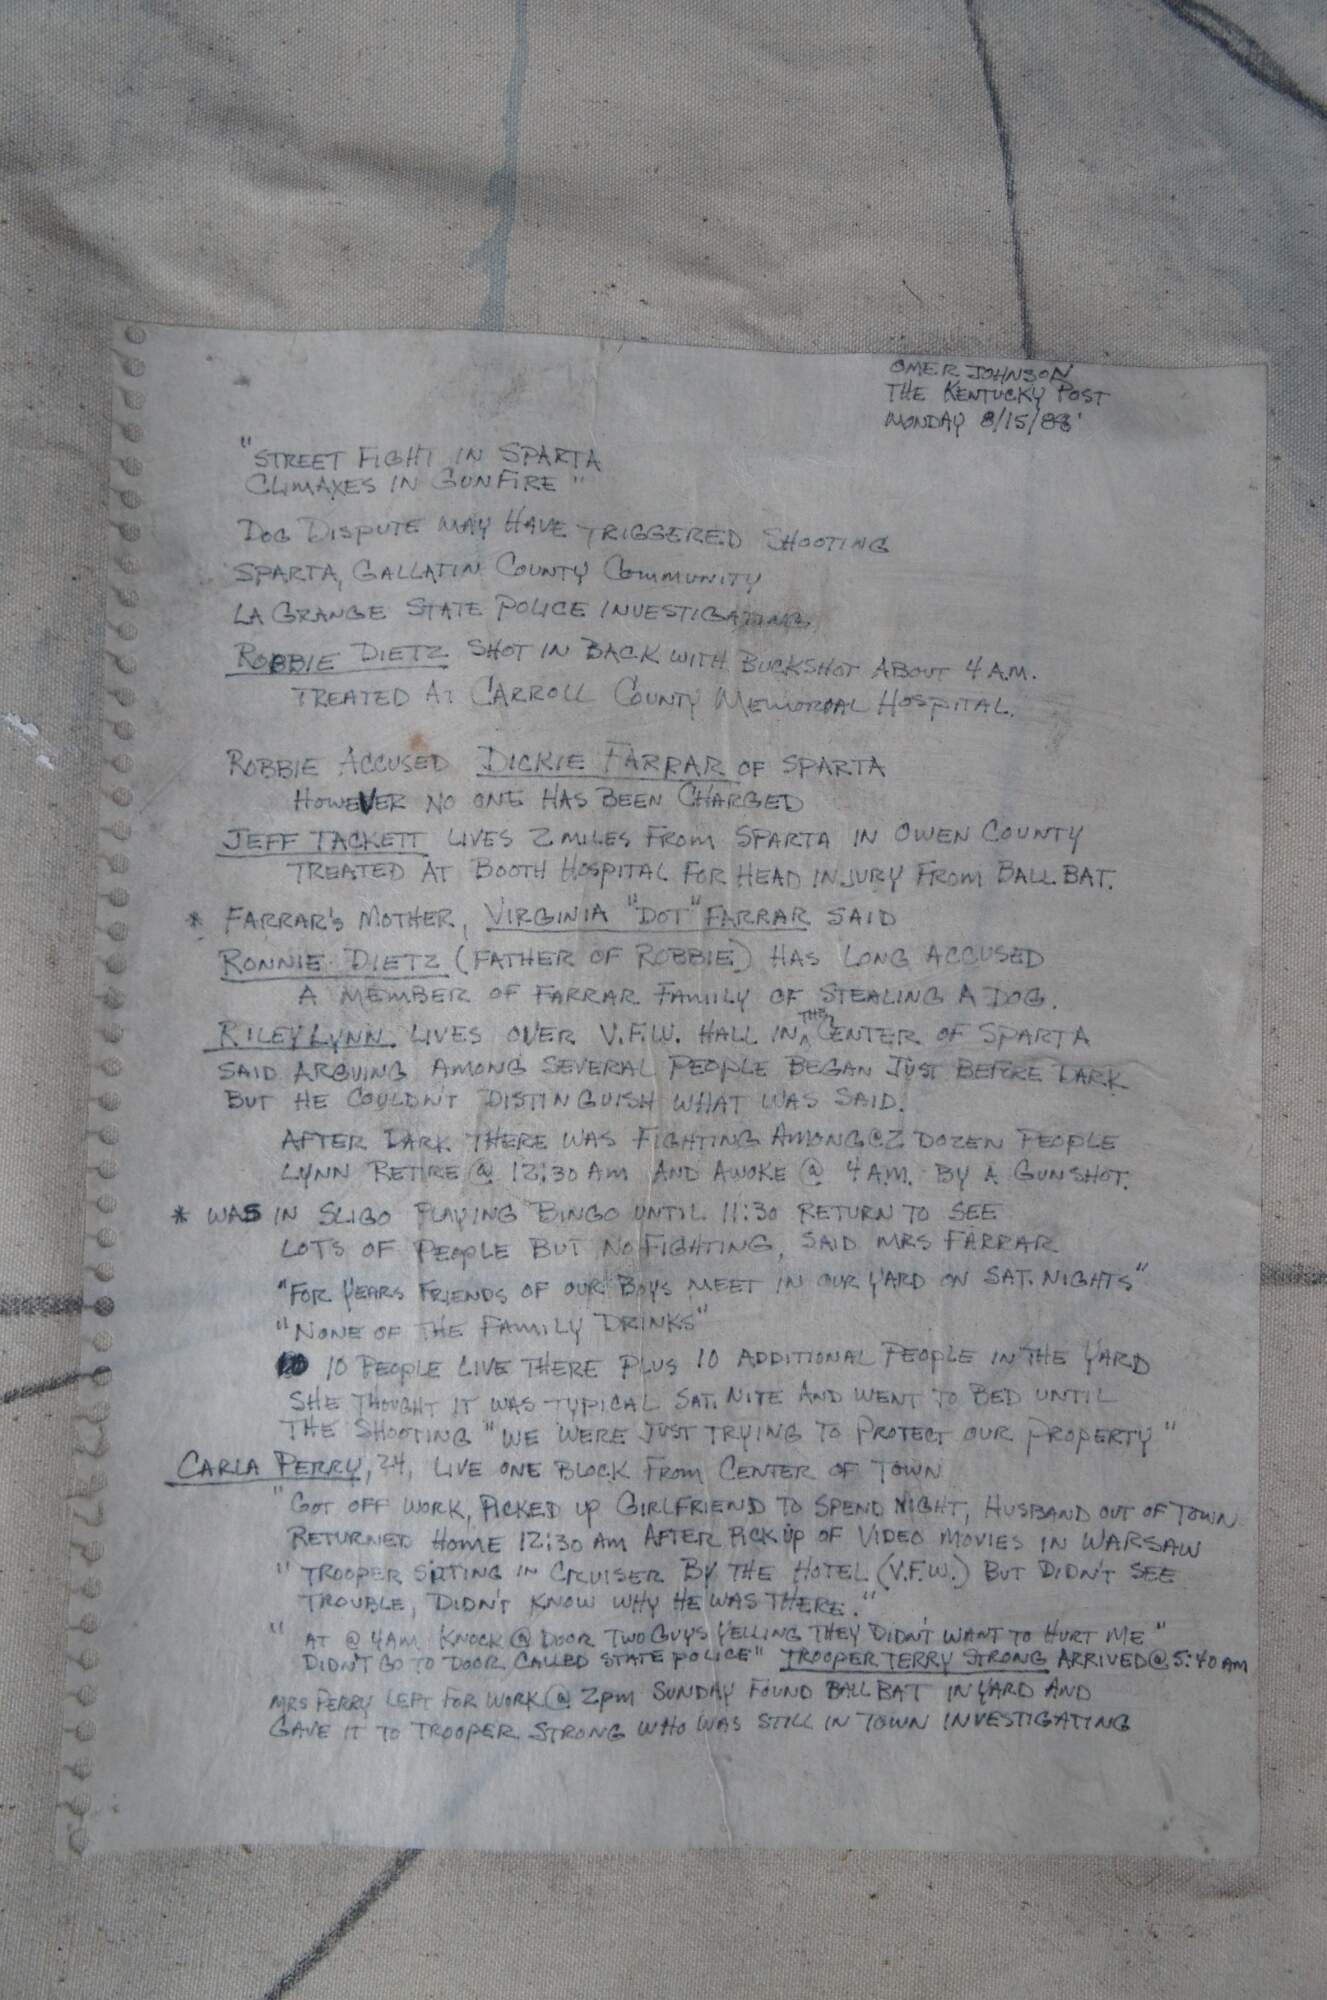 OMER JOHNSON
THE KENTUCKY POST
MONDAY 8/15/88'
"STREET FIGHT IN SPARTA
CLIMAXES IN GUNFIRE"
DOG DISPUTE MAY HAVE TRIGGERED SHOOTING
SPARTA, GALLATIN COUNTY COMMUNITY
LA GRANGE STATE POLICE INVESTIGATING
ROBBIE DIETZ SHOT IN BACK WITH BUCKSHOT ABOUT 4 A.M.
TREATED AT CARROLL COUNTY MEMORIAL HOSPITAL.
ROBBIE ACCUSED DICKIE FARRAR OF SPARTA
HOWEVER NO ONE HAS BEEN CHARGED
JEFF TACKETT LIVES 2 MILES FROM SPARTA IN OWEN COUNTY
TREATED AT BOOTH HOSPITAL FOR HEAD INJURY FROM BALL BAT.
* FARRAR'S MOTHER, VIRGINIA "DOT" FARRAR SAID
RONNIE DIETZ (FATHER OF ROBBIE) HAS LONG ACCUSED
A MEMBER OF FARRAR FAMILY OF STEALING A DOG.
RILEY LYNN LIVES OVER V.F.W. HALL IN THE CENTER OF SPARTA
SAID ARGUING AMONG SEVERAL PEOPLE BEGAN JUST BEFORE DARK
BUT HE COULDN'T DISTINGUISH WHAT WAS SAID.
AFTER DARK THERE WAS FIGHTING AMONG @ 2 DOZEN PEOPLE
LYNN RETIRE @ 12:30 AM AND AWOKE @ 4 A.M. BY A GUNSHOT.
* WAS IN SLIGO PLAYING BINGO UNTIL 11:30 RETURN TO SEE
LOTS OF PEOPLE BUT NO FIGHTING, SAID MRS FARRAR
"FOR YEARS FRIENDS OF OUR BOYS MEET IN OUR YARD ON SAT. NIGHTS"
"NONE OF THE FAMILY DRINKS"
10 PEOPLE LIVE THERE PLUS 10 ADDITIONAL PEOPLE IN THE YARD
SHE THOUGHT IT WAS TYPICAL SAT. NITE AND WENT TO BED UNTIL
THE SHOOTING "WE WERE JUST TRYING TO PROTECT OUR PROPERTY"
CARLA PERRY, 24, LIVE ONE BLOCK FROM CENTER OF TOWN
"GOT OFF WORK, PICKED UP GIRLFRIEND TO SPEND NIGHT, HUSBAND OUT OF TOWN
RETURNED HOME 12:30 AM AFTER PICK UP OF VIDEO MOVIES IN WARSAW
"TROOPER SITTING IN CRUISER BY THE HOTEL (V.F.W.) BUT DIDN'T SEE
TROUBLE, DIDN'T KNOW WHY HE WAS THERE."
"AT @ 4 AM KNOCK @ DOOR TWO GUYS YELLING THEY DIDN'T WANT TO HURT ME"
DIDN'T GO TO DOOR CALLED STATE POLICE" TROOPER TERRY STRONG ARRIVED @ 5:40 AM
MRS PERRY LEFT FOR WORK @ 2 PM SUNDAY FOUND BALL BAT IN YARD AND
GAVE IT TO TROOPER STRONG WHO WAS STILL IN TOWN INVESTIGATING